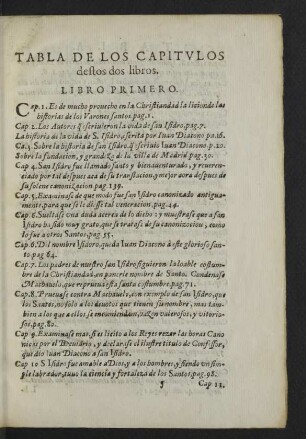 TABLA DE LOS CAPITVLOS
destos dos libros.
LIBRO PRIMERO.
Cap. 1. Es de mucho prouecho en la Christiandad la licion de las
historias de los Varones santos. pag. 1.
Cap. 2. Los Autores q̃ escriuieron la vida de san Isidro. pag. 7.
La historia de la vida de S. Isidro, escrita por Iuan Diacono. pa. 16.
Cap. 3. Sobre la historia de san Isidro, q̃ escriuio Iuan Diacono. p. 20.
Sobre la fundacion, y grandeza de la villa de Madrid. pag. 30.
Cap 4. San Isidro fue llamado santo y bienauenturado, y reuerenciado
por tal despues aca de su translacion, y mejor aora despues de
su solene canonizacion. pag. 139.
Cap. 5. Examinase de que modo fue san Isidro canonizado antiguamente,
para que se le diesse tal veneracion. pag. 44.
Cap. 6. Sueltase vna duda acerca de lo dicho: y muestrase que a san
Isidro ha sido muy grato, que se tratasse de su canonizacion, como
lo fue a otros Santos. pag. 55.
Cap. 6. Del nombre Isidoro, que da Iuan Diacono à este glorioso santo.
pag. 64.
Cap. 7. Los padres de nuestro san Isidro siguieron la loable costumbre
de la Christiandad, en ponerle nombre de Santo. Condenase
Machauelo, que reprueua esta santa costumbre. pag. 71.
Cap. 8. Prueuase contra Machauelo, con exemplo de san Isidro, que
los Santos, no solo a los deuotos que tienen su nombre, mas tambien
a los que a ellos se encomiendan, hazen valerosos, y vitoriosos.
pag. 80.
Cap. 9. Examinase mas, si es licito a los Reyes rezar las horas Canonicas
por el Breuiario, y declarase el illustre titulo de Confessor,
que dio Iuan Diacono a san Isidro.
Cap. 10. S. Isidro fue amable a Dios, y a los hombres, y siendo vn simple
labrador, tuuo la ciencia y fortaleza de los Santos. pag. 98.
Cap 11.